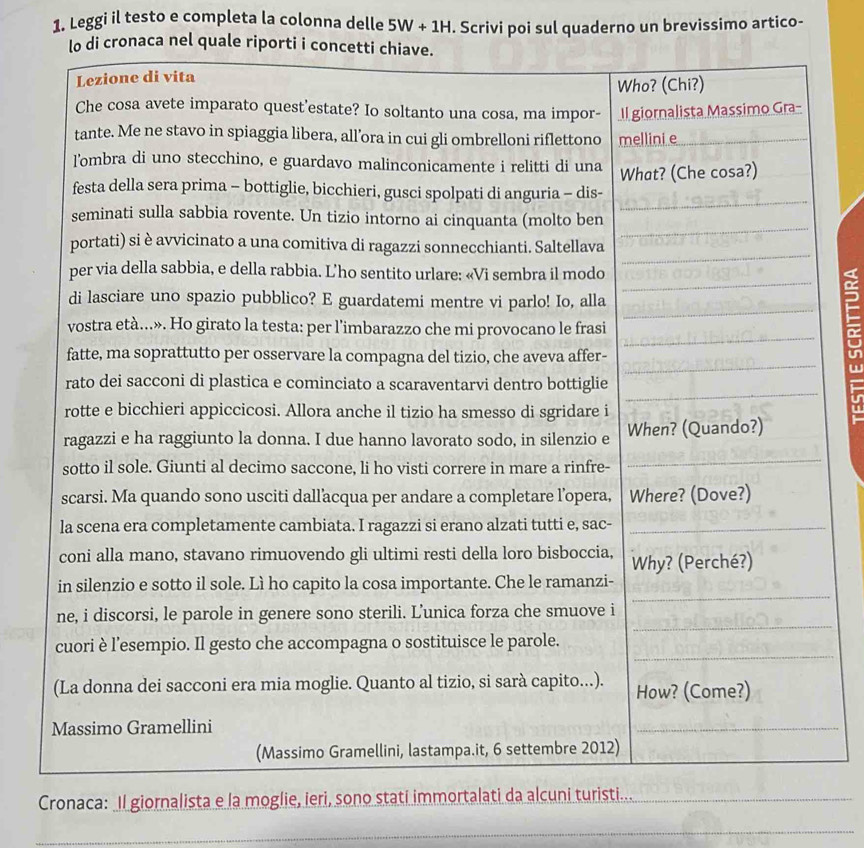 1. Leggi il testo e completa la colonna delle 5W + 1H. Scrivi poi sul quaderno un brevissimo artico-
lo di cronaca nel quale riporti i concetti chiave.
Lezione di vita
Che cosa avete imparato quest'estate? Io soltanto una cosa, ma impor-
tante. Me ne stavo in spiaggia libera, all'ora in cui gli ombrelloni riflettono
l'ombra di uno stecchino, e guardavo malinconicamente i relitti di una
festa della sera prima – bottiglie, bicchieri, gusci spolpati di anguria – dis-
seminati sulla sabbia rovente. Un tizio intorno ai cinquanta (molto ben
portati) si è avvicinato a una comitiva di ragazzi sonnecchianti. Saltellava
per via della sabbia, e della rabbia. L'ho sentito urlare: «Vi sembra il modo
di lasciare uno spazio pubblico? E guardatemi mentre vi parlo! Io, alla
vostra età...». Ho girato la testa: per l'imbarazzo che mi provocano le frasi
fatte, ma soprattutto per osservare la compagna del tizio, che aveva affer-
rato dei sacconi di plastica e cominciato a scaraventarvi dentro bottiglie
rotte e bicchieri appiccicosi. Allora anche il tizio ha smesso di sgridare i
ragazzi e ha raggiunto la donna. I due hanno lavorato sodo, in silenzio e
sotto il sole. Giunti al decimo saccone, li ho visti correre in mare a rinfre-
scarsi. Ma quando sono usciti dall'acqua per andare a completare l'opera,
la scena era completamente cambiata. I ragazzi si erano alzati tutti e, sac-
coni alla mano, stavano rimuovendo gli ultimi resti della loro bisboccia,
in silenzio e sotto il sole. Lì ho capito la cosa importante. Che le ramanzi-
ne, i discorsi, le parole in genere sono sterili. L'unica forza che smuove i
cuori è l'esempio. Il gesto che accompagna o sostituisce le parole.
(La donna dei sacconi era mia moglie. Quanto al tizio, si sarà capito...).
Massimo Gramellini
(Massimo Gramellini, lastampa.it, 6 settembre 2012)
Who? (Chi?)
Il giornalista Massimo Gra-
mellini e
What? (Che cosa?)
When? (Quando?)
Where? (Dove?)
Why? (Perché?)
How? (Come?)
Cronaca: Il giornalista e la moglie, ieri, sono stati immortalati da alcuni turisti...
TESTI E SCRITTURA